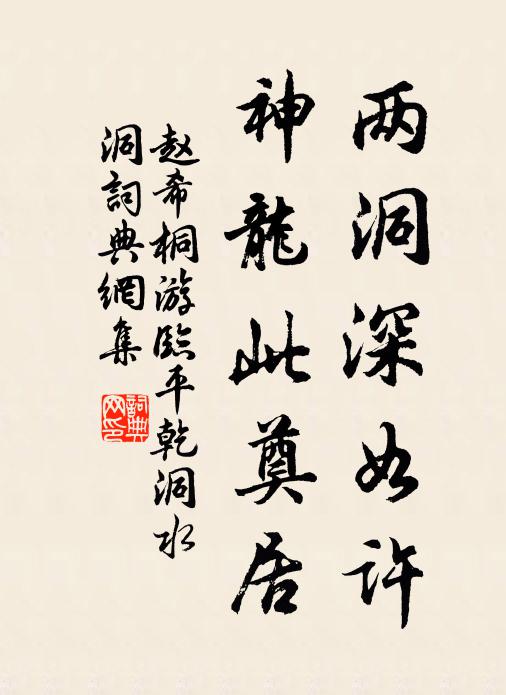 两洞深如许
神龍此奠居
赵希桐游臨平乾洞水
洞詞典網集
詞典
网印